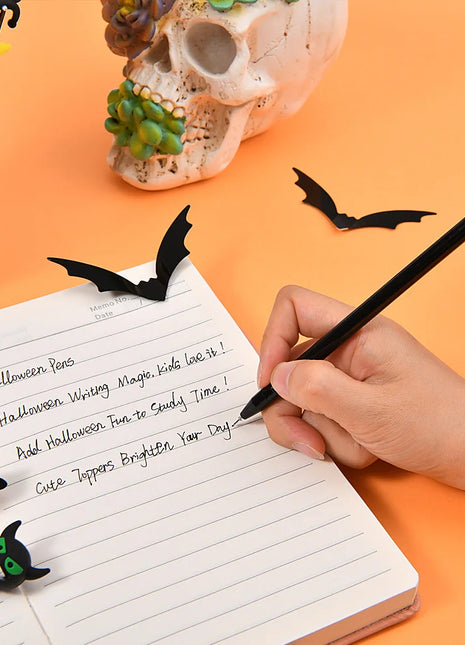 Memo No.
Date
lloween Pens
Halloween Writng Magic, Kids love it!
Add Halloween Fun to Study Time!
Cute Toppers Brighten Your Day